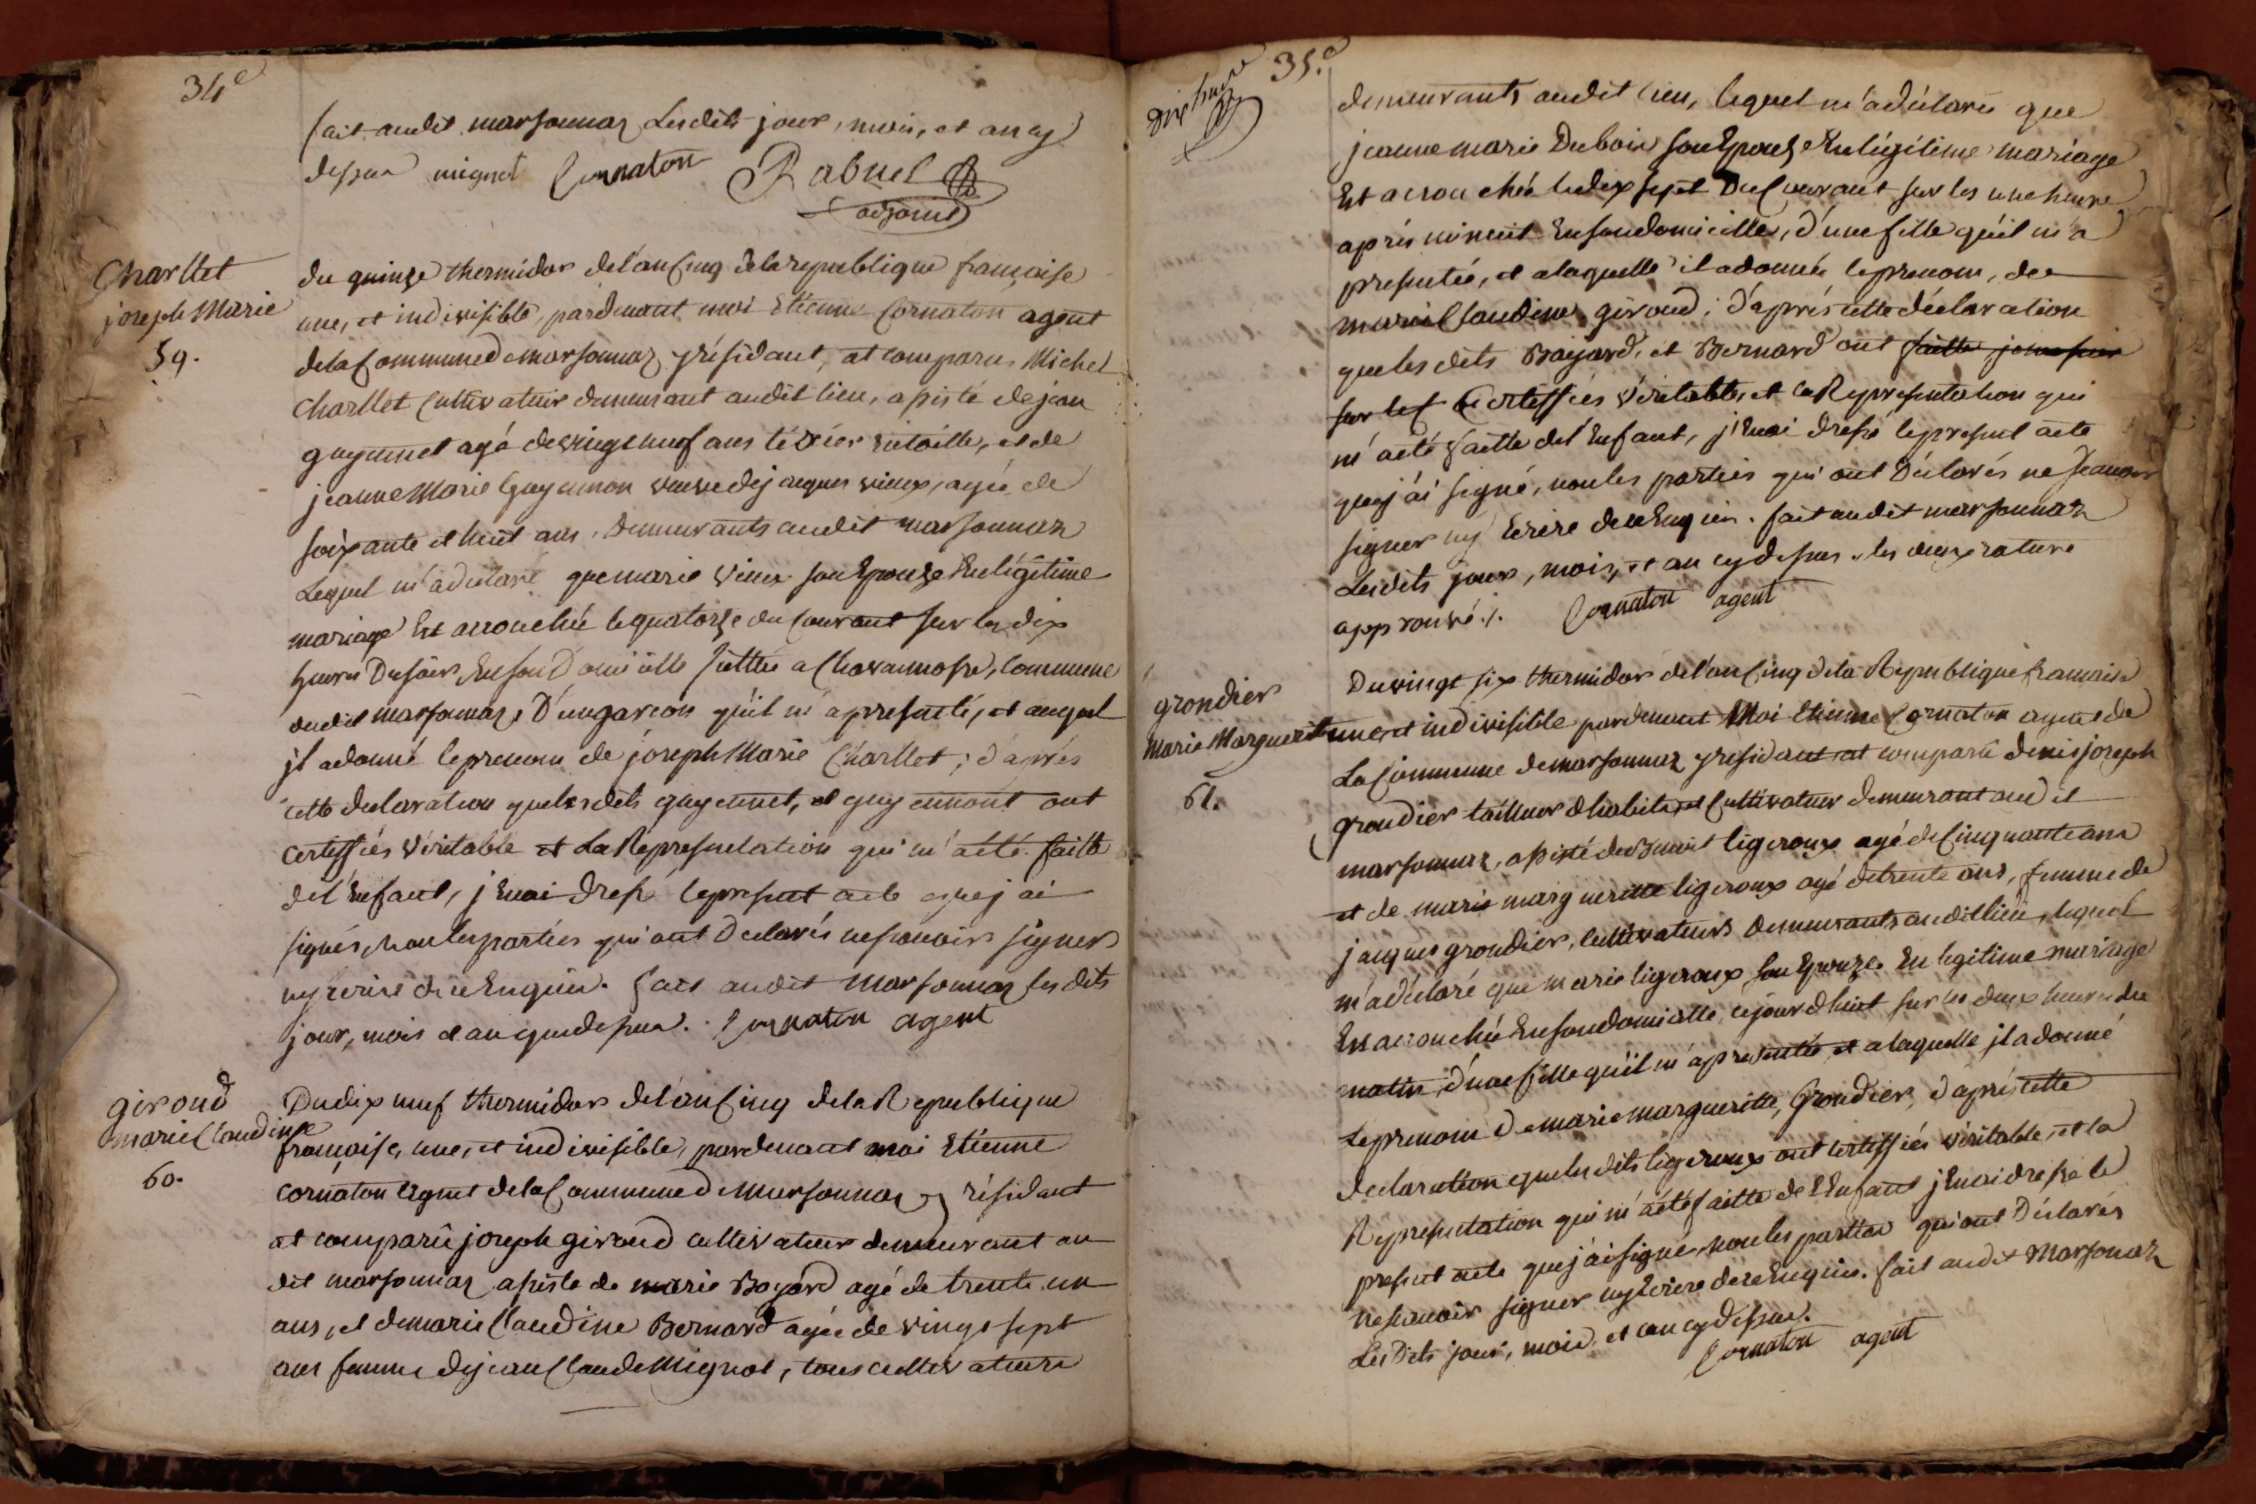 34e
fait audit marsonnaz lesdits jour, mois, et an cy
dessus mignot Cornaton Rabuel
adjoint
Charllet
joseph Marie
59.
du quinze thermidor de l'an Cinq de la republique francaise
une, et indivisible, pardevant moi Etienne Cornaton agent
de la Commune de Marsonnaz y résidant, at comparus Michel
Charllet Cultivateur demeurant audit lieu, assisté de jean
guyennet agé de vingt neuf ans en toille, et de
jeanne Marie Guyennon veuve de jacques vieux, agée de
soixante et huit ans, demeurants audit marsonnaz
Lequel m'a déclaré que marie vieux son Epouze En légitime
mariage Est accouchée le quatorze du Courant sur les dix
heures du soir, En son Domicille scittée a Chavannosse, Commune
dudit marsonnaz, D'un garcon qu'il m'a presenté, et auquel
jl a donné le prenom de joseph Marie Charllet; d'après
cette declaration que lesdits guyennet, et guyennont ont
certiffiés véritable et la Represendation qui m'a été faitte
de l'Enfant, j'En ai dressé le present acte que j'ai
signés, non les parties qui ont déclarés ne scavoir signer
ny écrire de ce Enquis. fait audit Marsonnaz les dits
jour, mois et an que dessus. Cornaton agent
giroud
marie Claudine
60.
Du dix neuf thermidor de l'an Cinq de la Republique
francaise, une, et indivisible, pardevant moi Etienne
Cornaton agent de la Commune de Marsonnaz y résidant
at comparû joseph giroud cultivateur demeurant au
dit marsonnaz assisté de marie Bayard agé de trente un
ans, et de marie Claudine Bernard agée de vingt sept
ans femme de jean Claude Mignot, tous cultivateurs
35.e
dix huit
demeurants audit lieu, lequel m'a déclarée que
jeanne marie Dubois son Epouze En légitime mariage
Est accouchée le dix sept Du Courant sur les une heure
après minuit En son domicille, d'une fille qu'il m'a
presentée, et a laquelle il a donnée le prenom, de
marie Claudine giroud; d'après cette déclaration
que les dits Bayard, et Bernard ont faitte
sur les Certiffiés véritable, et la Representation qui
m'a été faitte de l'Enfant, j'En ai dressé le present acte
que j'ai signé, non les parties qui ont Déclarés ne scavoir
signer ny Ecrire de ce Enquis. fait audit marsonnaz
Lesdits jour, mois, et an cy dessus, les deux rature
approuvé./. Cornaton agent
grondier
Marie Marguerite
61.
Du vingt six thermidor de l'an Cinq de la République francaise
une, et indivisible pardevant Moi Etienne Cornaton agent de
La Commune de marsonnaz y residant at comparû denis joseph
grondier tailleur d'habits, et Cultivateur demeurant audit
marsonnaz, assisté de Benoit ligeroux agé de Cinquante ans
et de marie margueritte ligeroux agé de trente ans, femme de
jacques grondier, Cultivateurs demeurants audit lieu, lequel
m'a déclaré que marie ligeroux, son Epouze En legitime mariage
Est accouchée En son domicille cejourd'huit sur les deux heures du
matin, d'une fille qu'il m'a presentée, et a laquelle jl a donné
Le prenom de marie margueritte, Grondier, d'après cette
declaration que les dits ligeroux ont certiffiés véritable, et la
Representation qui m'a été faitte de l'Enfant j'En ai dressé le
present acte que j'ai signé, non les parties qui ont Déclarés
ne scavoir signer ny Ecrire de ce Enquis. fait audit Marsonnaz
Les Dits jour, mois et an cy dessus.
Cornaton agent